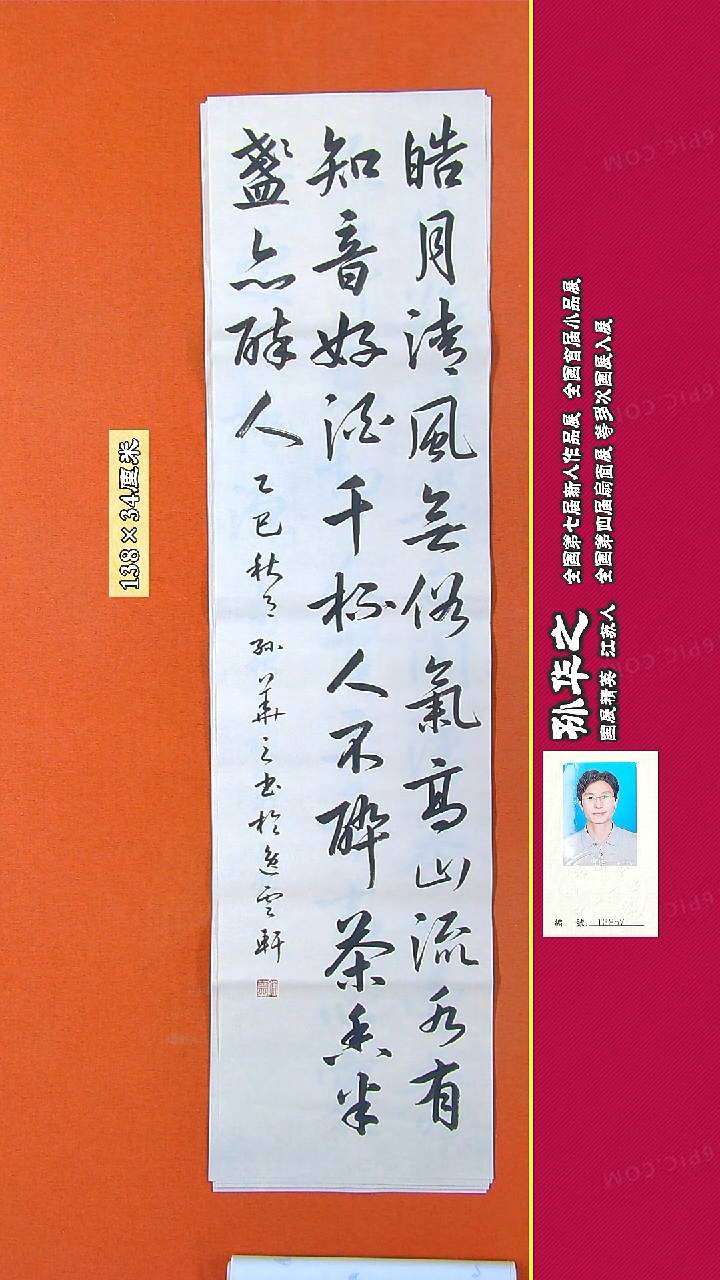 皓月清風無俗氣高山流水有
知音好酒千杯人不醉茶香半
盞亦醉人
乙巳秋月孫華之書於逸雲軒
138×34厘米
孙华之
国展精英 江苏人
全国第七届新人作品展 全国首届小品展
全国第四届扇面展 等多次国展入展
編 號:
6PIC.COM
6PIC.COM
6PIC.COM
6PIC.COM
6PIC.COM